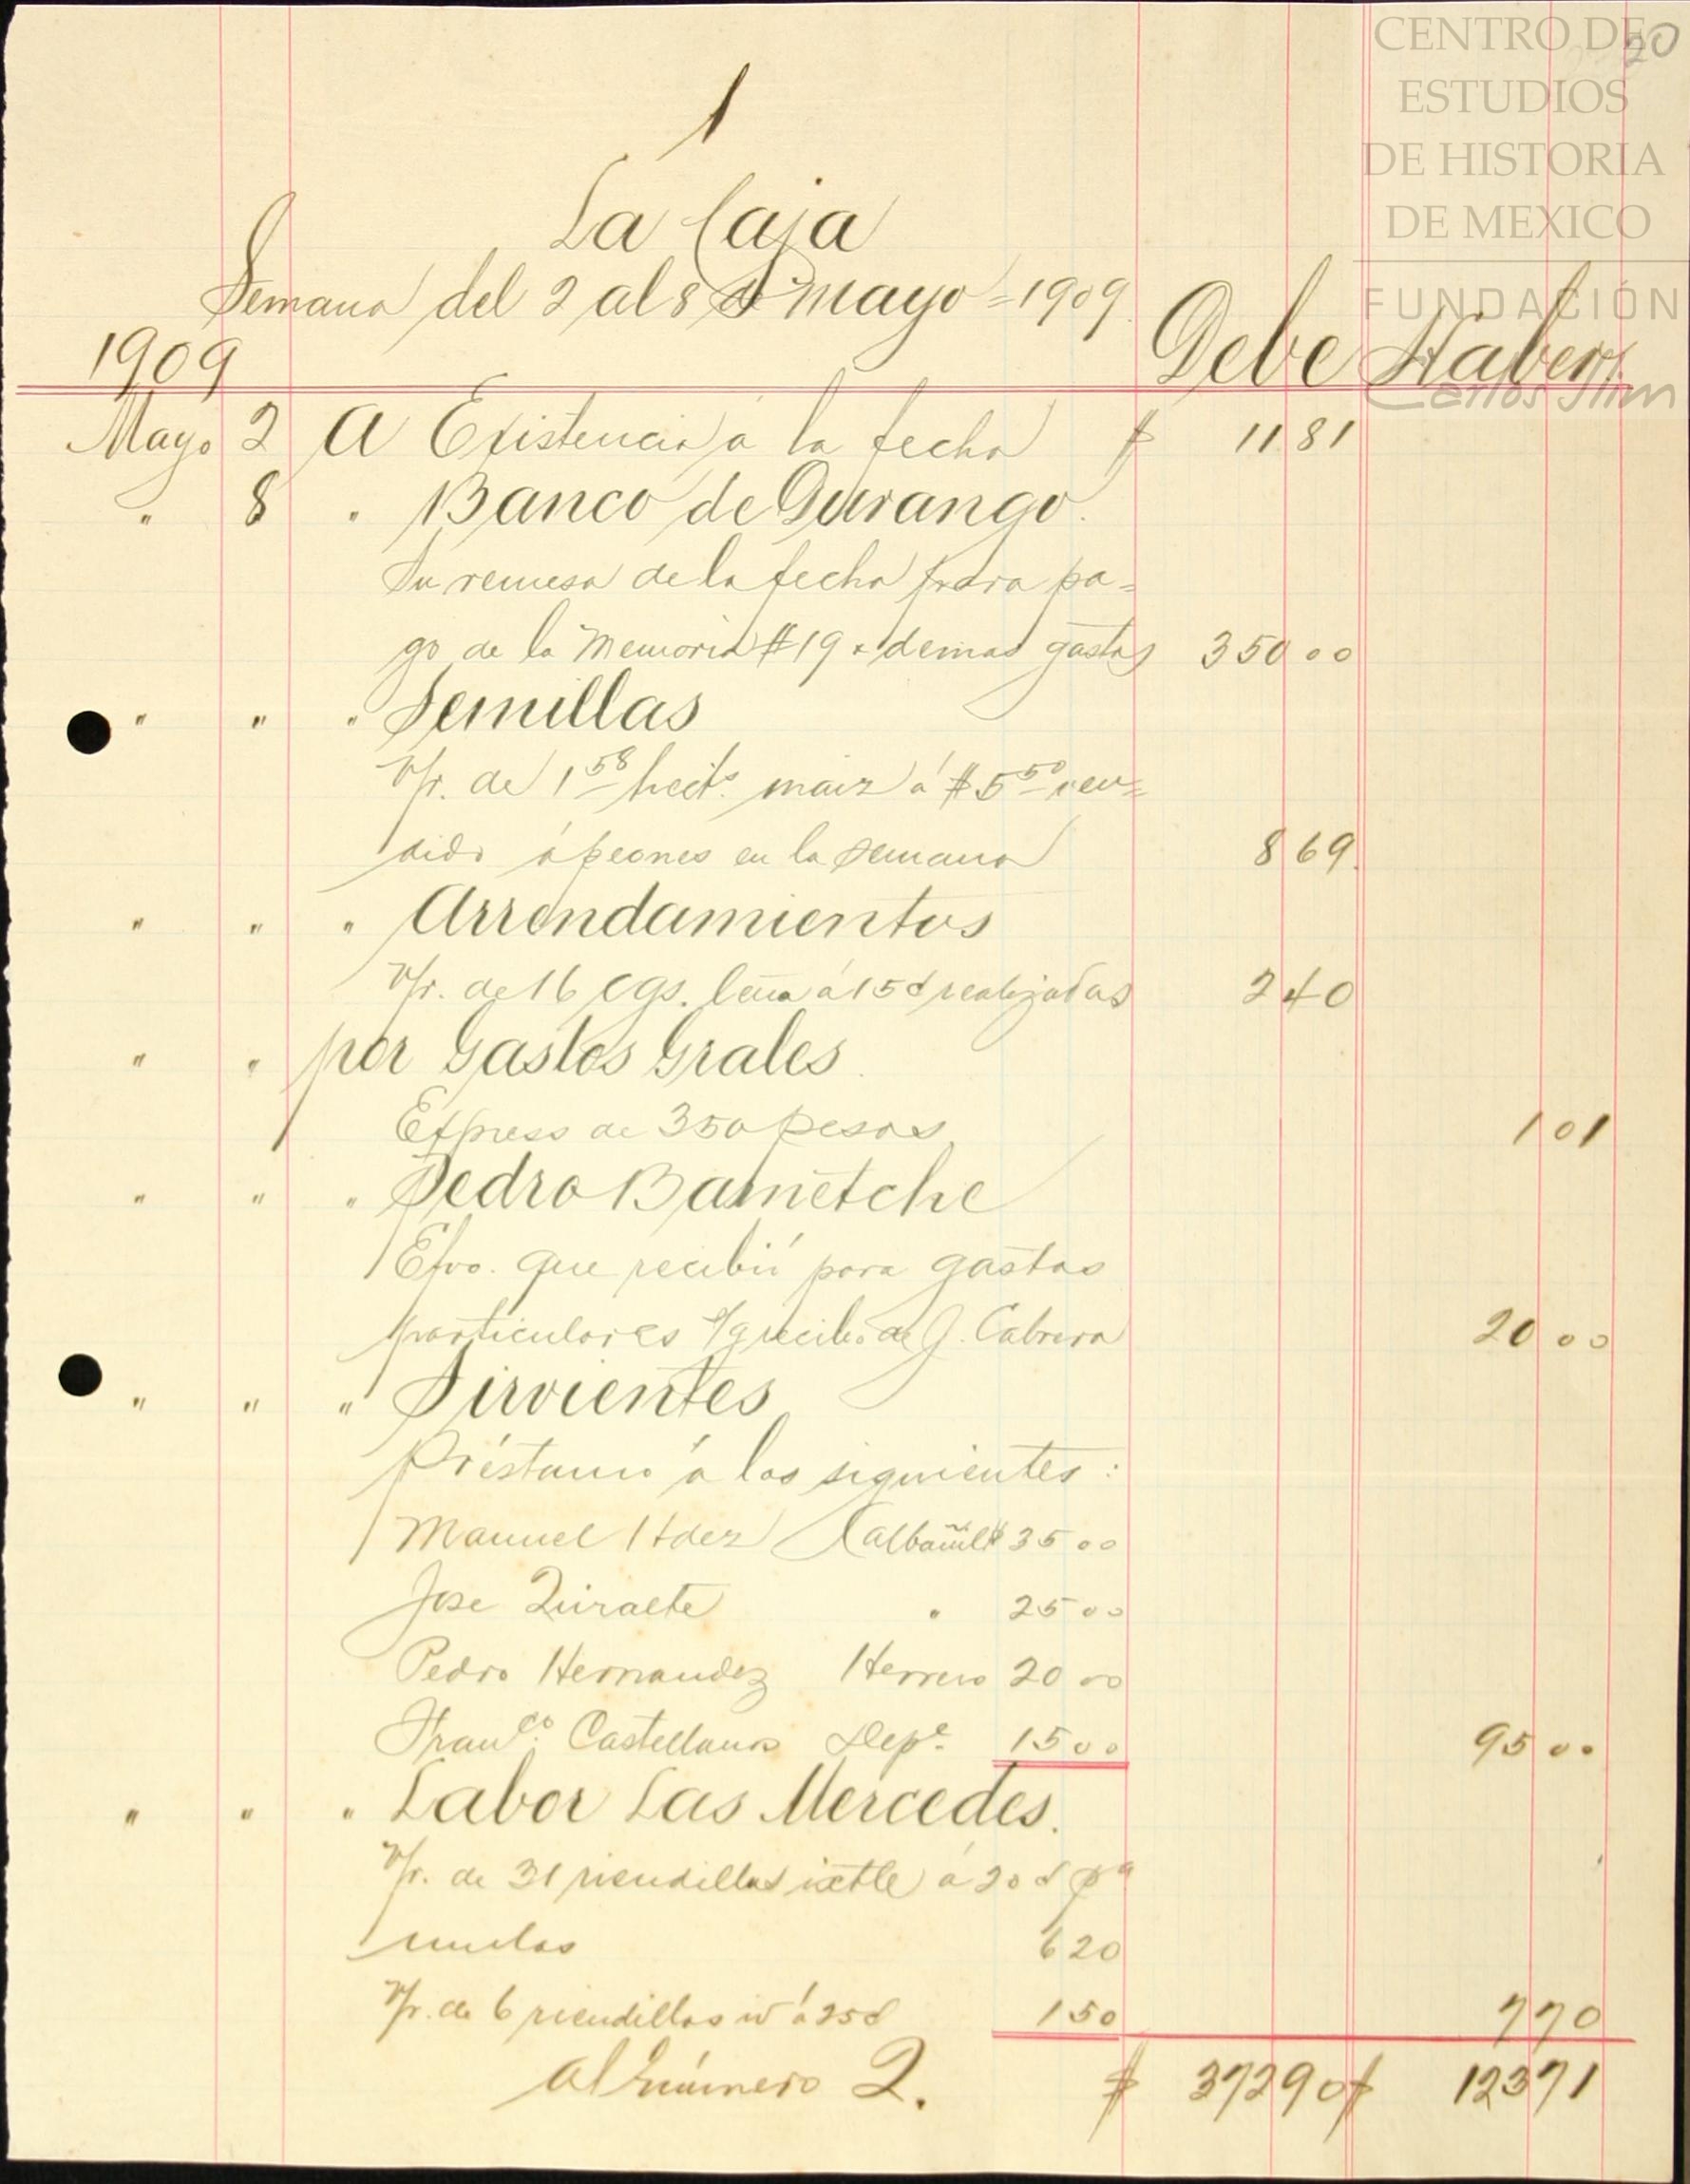 CENTRO DE
ESTUDIOS
DE HISTORIA
DE MEXICO
FUNDACIÓN
Carlos Slim
20
1
La Caja
Semana del 2 al 8 de Mayo = 1909.
1909 Debe Haber
Mayo 2 A Existencia á la fecha $ 11 81
" 8 " Banco de Durango.
Su remesa de la fecha para pa=
go de la Memoria #19 & demas gastos 350 00
" " " Semillas
V/r. de 1 58 hects. maiz á $ 5 50 ven=
dido á peones en la semana 8 69.
" " " Arrendamientos
V/r. de 16 cgs. leña á 15 ¢ realizadas 2 40
" " por Gastos Grales.
Express de 350 pesos 1 01
" " " Pedro
Efvo. que recibió para gastos
particulares s/g recibo de J. Cabrera 20 00
" " " Sirvientes
Préstamo á los siguientes:
Manuel Hdez (albañil $ 35 00
Jose " 25 00
Pedro Hernandez Herrero 20 00
Franco. Castellanos Depe. 15 00 95 00
" " " Labor Las Mercedes.
V/r. de 31 riendillas ixtle á 20 ¢ pa
mulas 6 20
V/r. de 6 riendillas id á 25 ¢ 1 50 7 70
al número 2. $ 372 90 $ 123 71